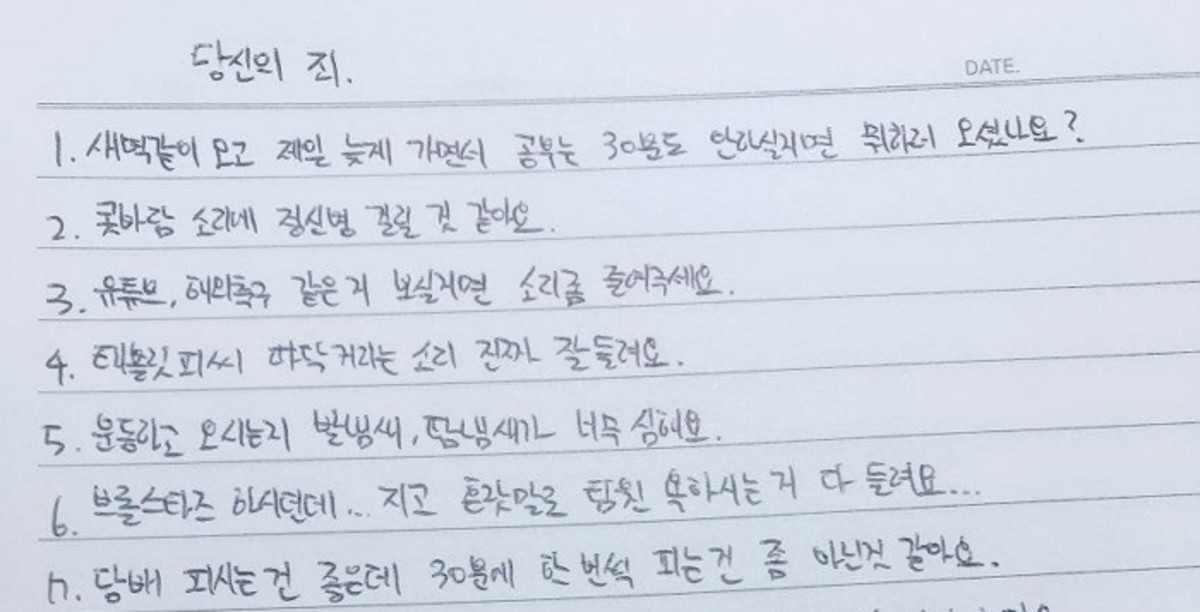 당신의 죄.
DATE.
1. 새벽같이 오고 제일 늦게 가면서 공부는 30분도 안하실거면 뭐하러 오셨나요?
2. 콧바람 소리에 정신병 걸릴 것 같아요.
3. 유튜브, 해외축구 같은거 보실거면 소리좀 줄여주세요.
4. 태블릿피씨 따닥거리는 소리 진짜 잘들려요.
5. 운동하고 오시는지 발냄새, 땀냄새가 너무 심해요.
6. 브롤스타즈 하시던데... 지고 혼잣말로 팀원 욕하시는거 다 들려요...
7. 담배 피시는건 좋은데 30분에 한번씩 피는건 좀 아닌것 같아요.